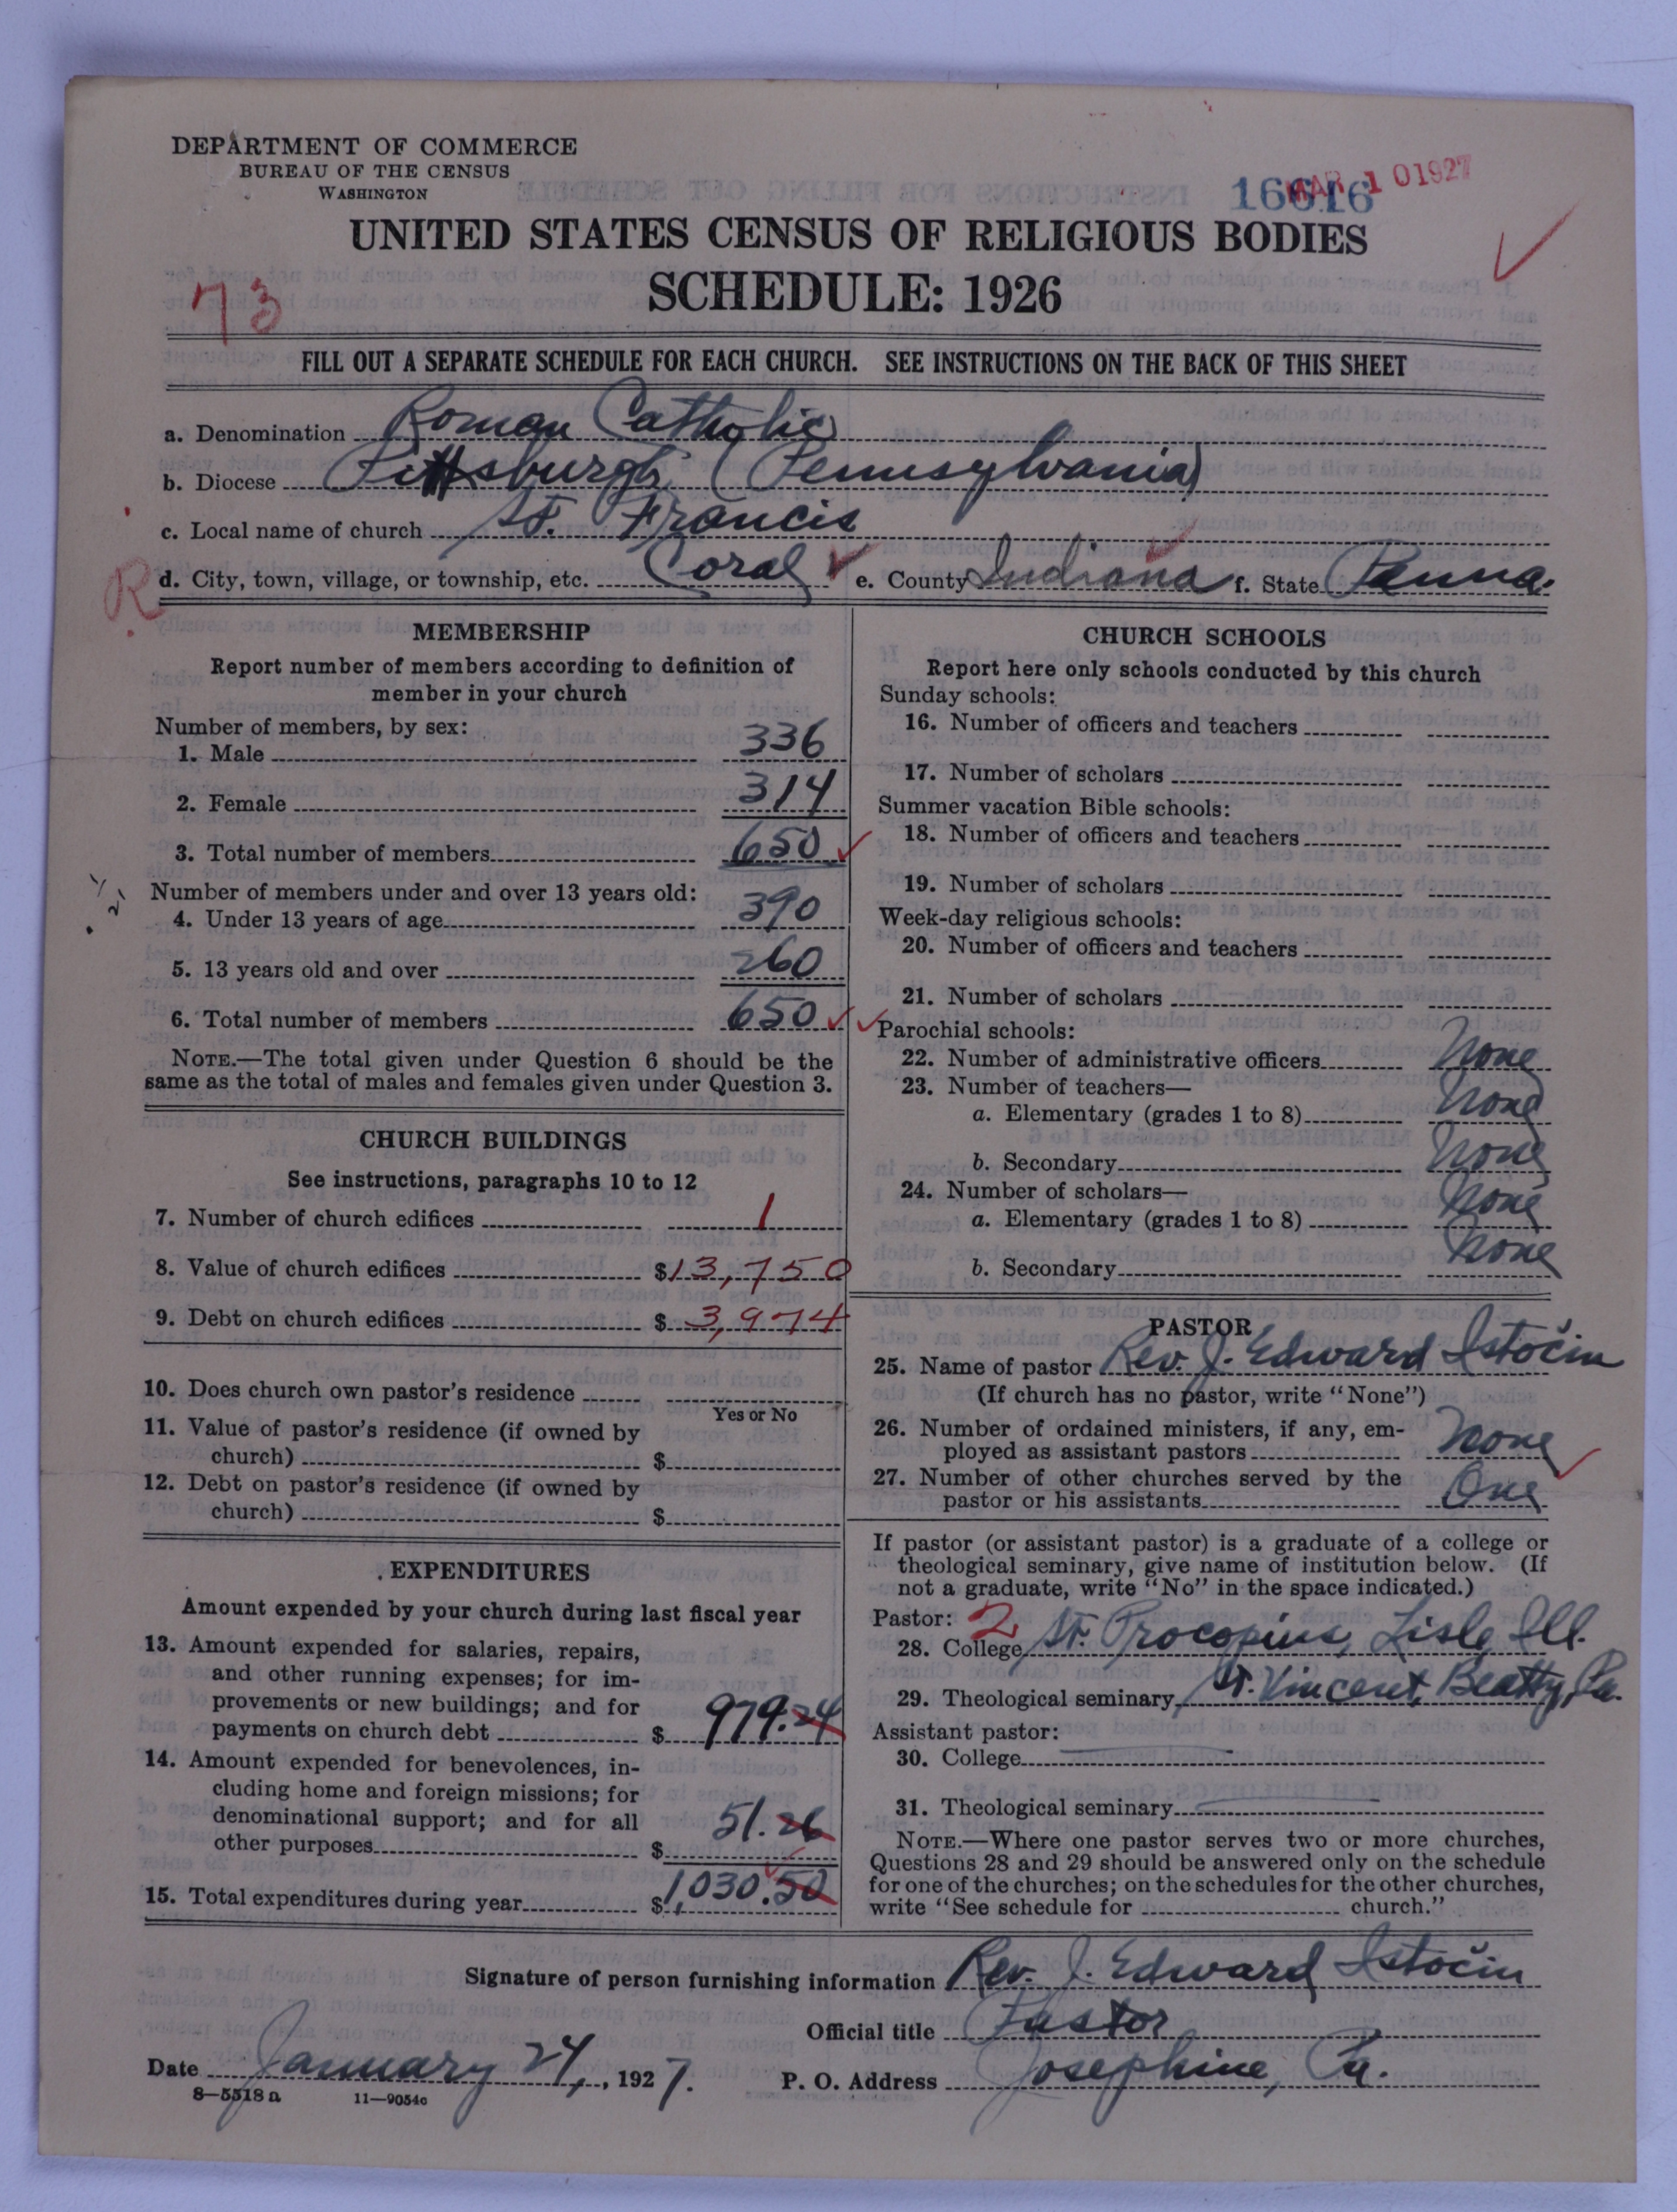 DEPARTMENT OF COMMERCE
BUREAU OF THE CENSUS
WASHINGTON
16616
MAR 10 1927
UNITED STATES CENSUS OF RELIGIOUS BODIES
SCHEDULE: 1926
73
FILL OUT A SEPARATE SCHEDULE FOR EACH CHURCH. SEE INSTRUCTIONS ON THE BACK OF THIS SHEET
a. Denomination Roman Catholic
b. Diocese Pittsburgh (Pennsylvania)
c. Local name of church St. Francis
R
d. City, town, village, or township, etc. Coral e. County Indiana f. State Penna.
MEMBERSHIP
Report number of members according to definition of
member in your church
Number of members, by sex:
1. Male 336
2. Female 314
3. Total number of members 650
Number of members under and over 13 years old:
4. Under 13 years of age 390
5. 13 years old and over 260
6. Total number of members 650
NOTE.—The total given under Question 6 should be the
same as the total of males and females given under Question 3.
CHURCH BUILDINGS
See instructions, paragraphs 10 to 12
7. Number of church edifices 1
8. Value of church edifices $13,750
9. Debt on church edifices $3,974
10. Does church own pastor's residence
Yes or No
11. Value of pastor's residence (if owned by
church) $
12. Debt on pastor's residence (if owned by
church) $
EXPENDITURES
Amount expended by your church during last fiscal year
13. Amount expended for salaries, repairs,
and other running expenses; for im-
provements or new buildings; and for
payments on church debt $979.24
14. Amount expended for benevolences, in-
cluding home and foreign missions; for
denominational support; and for all
other purposes $51.26
15. Total expenditures during year $1,030.50
CHURCH SCHOOLS
Report here only schools conducted by this church
Sunday schools:
16. Number of officers and teachers
17. Number of scholars
Summer vacation Bible schools:
18. Number of officers and teachers
19. Number of scholars
Week-day religious schools:
20. Number of officers and teachers
21. Number of scholars
Parochial schools:
22. Number of administrative officers None
23. Number of teachers—
a. Elementary (grades 1 to 8) None
b. Secondary None
24. Number of scholars—
a. Elementary (grades 1 to 8) None
b. Secondary None
PASTOR
25. Name of pastor Rev. J. Edward Istočin
(If church has no pastor, write "None")
26. Number of ordained ministers, if any, em-
ployed as assistant pastors None
27. Number of other churches served by the
pastor or his assistants One
If pastor (or assistant pastor) is a graduate of a college or
theological seminary, give name of institution below. (If
not a graduate, write "No" in the space indicated.)
Pastor: 2
28. College St. Procopius, Lisle, Ill.
29. Theological seminary, St. Vincent, Beatty, Pa.
Assistant pastor:
30. College
31. Theological seminary
NOTE.—Where one pastor serves two or more churches,
Questions 28 and 29 should be answered only on the schedule
for one of the churches; on the schedules for the other churches,
write "See schedule for church."
Signature of person furnishing information Rev. J. Edward Istočin
Official title Pastor
Date January 24, 1927. P. O. Address Josephine, Pa.
8—5518 a 11—9054c